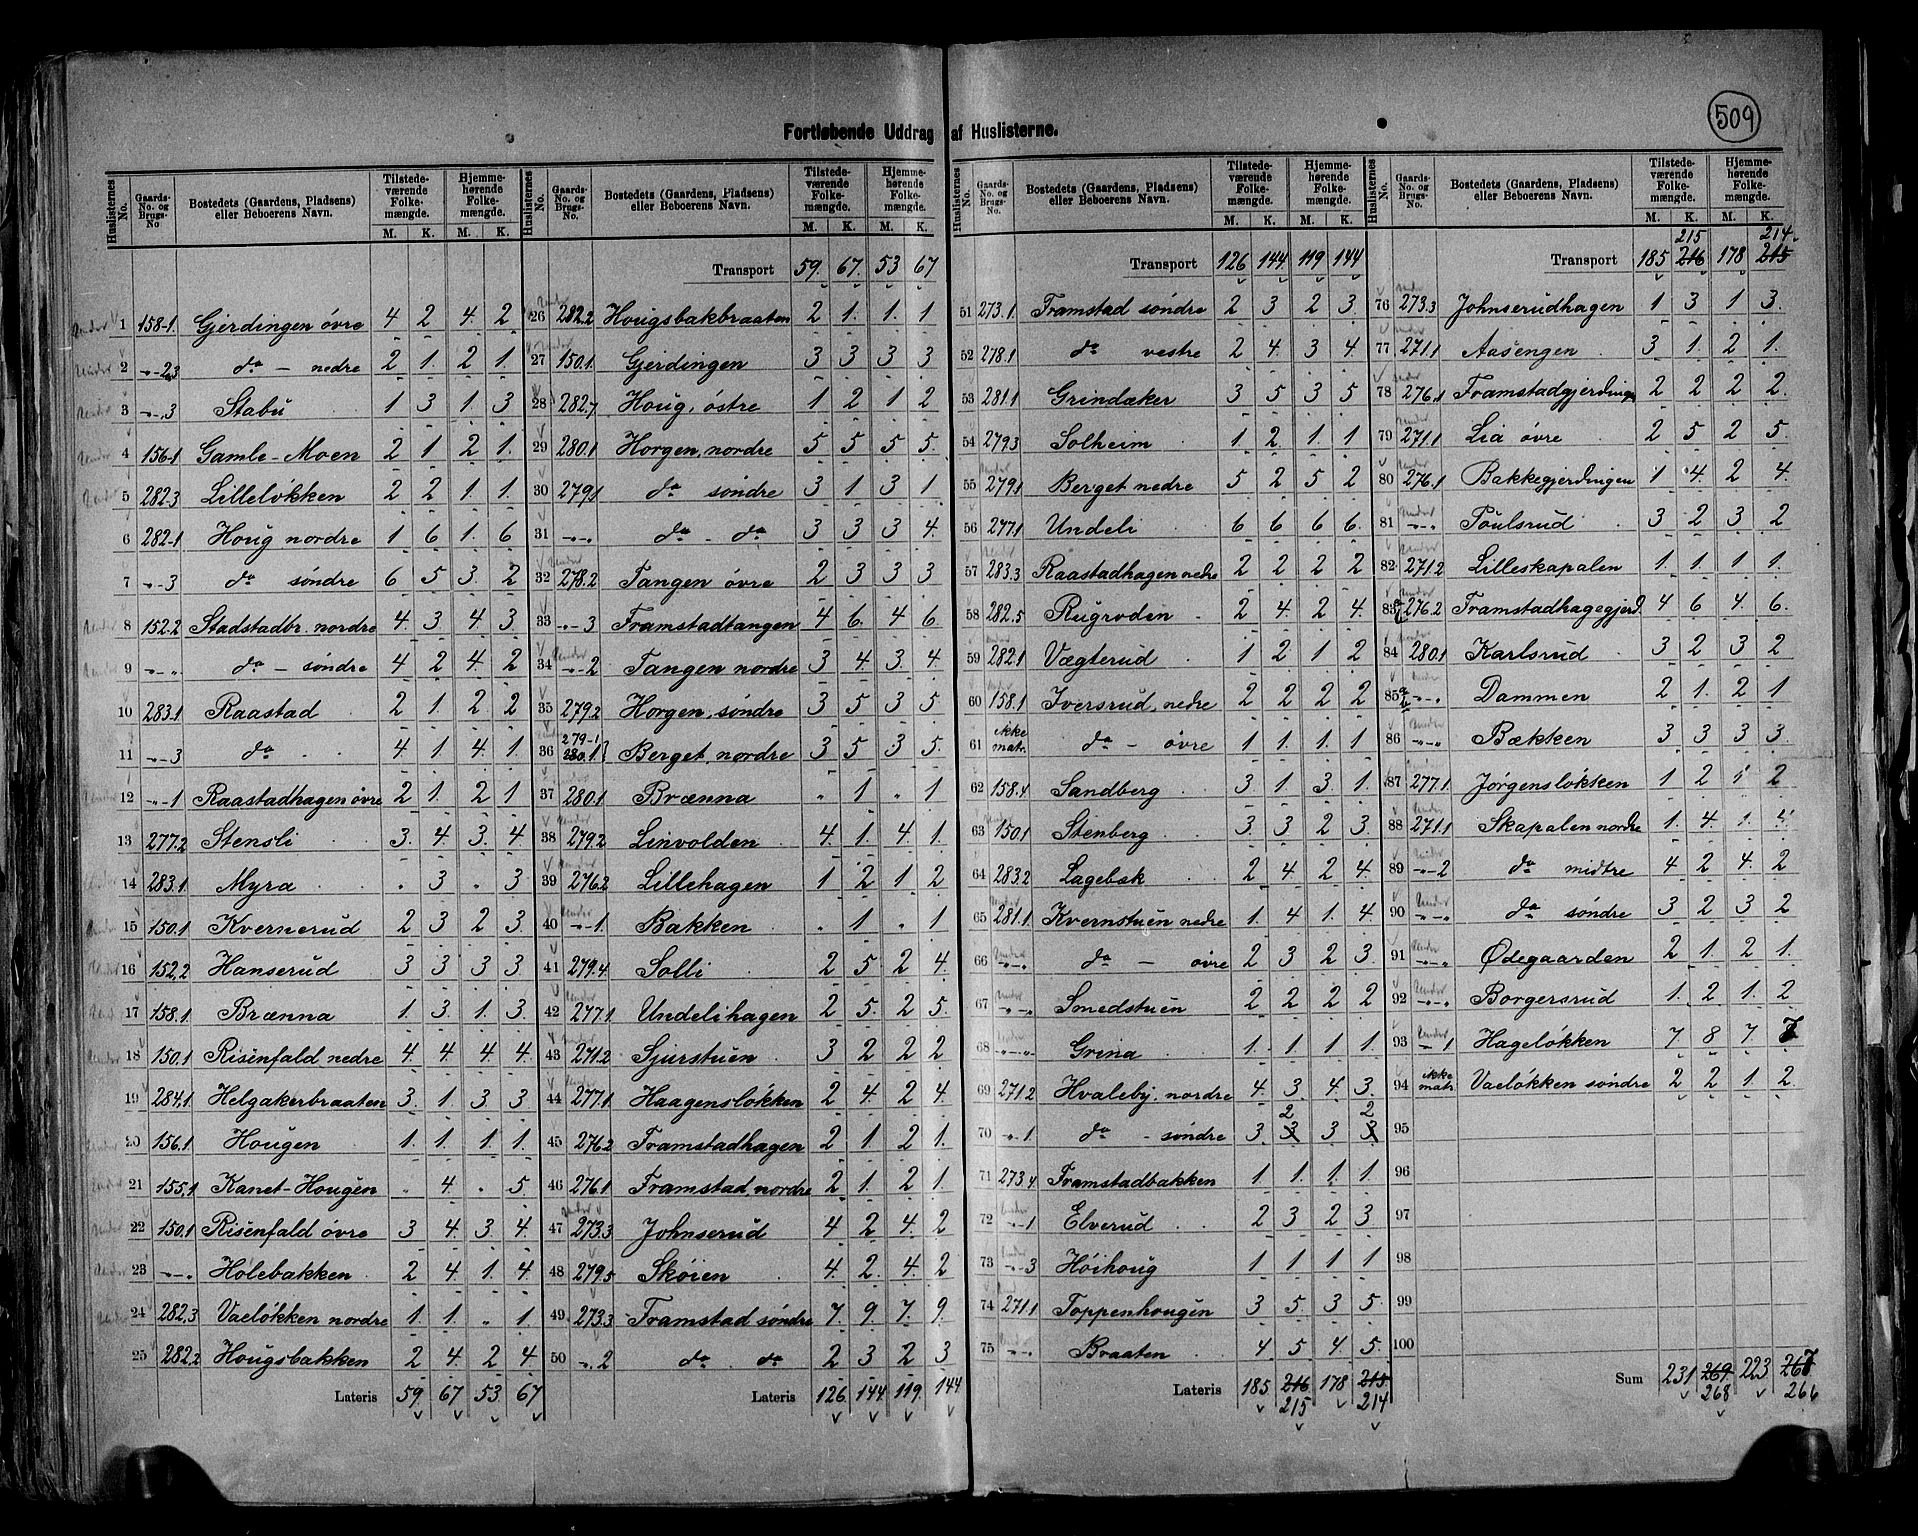 509
Fortløbende Uddrag af Huslisterne.
Huslisternes No. Gaards-No. og Brugs-No Bostedets (Gaardens, Pladsens) eller Beboerens Navn. Tilstedeværende Folkemængde. M. K. Hjemmehørende Folkemængde. M. K.
1 158-1. Gjerdingen øvre 4 2 4. 2
2 „-2,3 do - nedre 2 1. 2 1.
3 „-„3 Stabu 1 3 1. 3
4 156-1 Gamle-Moen 2 1 2 1.
5 282-3 Lilleløkken 2 2 1. 1.
6 282-1 Houg nordre 1 6 1. 6
7 „-3 do søndre 6 5 3. 2
8 152.2 Stadstadbr. nordre 4. 3 4. 3
9 „-„ do - søndre 4. 2 4. 2
10 283.1 Raastad 2 1. 2 2
11 „-3 do 4. 1 4. 1.
12 „-1 Raastadhagen øvre 2 1. 2 1
13 277.2 Stensli 3. 4. 3. 4
14 283.1. Myra . 3 . 3
15 150.1 Kvernerud 2 3 2 3.
16 152.2 Hanserud 3 3 3 3.
17 158.1. Brænna 1. 3. 1. 3.
18 150.1 Risenfald nedre 4. 4. 4. 4.
19 284.1. Helgakerbraaten 3. 1. 3. 3
20 156.1 Hougen 1. 1. 1. 1
21 155.1 Kanet-Hougen „ 4. „ 5
22 150.1 Risenfald øvre 3 4. 3. 4.
23 „-„ Holebakken 2 4. 1. 4.
24 282.3 Vaeløkken nordre 1. 1. „ 1.
25 282.2 Hougsbakken 2 4. 2 4.
Lateris 59. 67 53 67
Huslisternes No. Gaards-No. og Brugs-No. Bostedets (Gaardens, Pladsens) eller Beboerens Navn. Tilstedeværende Folkemængde. M. K. Hjemmehørende Folkemængde. M. K.
Transport 59. 67. 53 67
26 282.2 Hougsbakbraaten 2 1. 1. 1
27 150.1 Gjerdingen 3 3 3 3
28 282.7 Houg, østre 1 2 1 2
29 280.1 Horgen, nordre 5 5 5 5.
30 279.1 do søndre 3 1 3 1
31 „-„ do - do 3 3 3 4
32 278.2 Tangen øvre 2 3 3 3
33 „-3 Framstadtangen 4 6. 4 6
34 „-2 Tangen nordre 3 4. 3. 4
35 279.2 Horgen, søndre 3 5 3 5
36 279-1 280.1 Berget, nordre 3 5 3 5.
37 280.1 Brænna „ 1 „ 1
38 279.2 Linvolden 4. 1. 4 1.
39 276.2 Lillehagen 1 2 1 2
40 „-1. Bakken „ 1 „ 1
41 279.4. Solli 2 5 2 4.
42 277.1 Undelihagen 2 5. 2 5.
43 271.2 Sjurstuen 3 2 2 2
44 277.1 Haagensløkken 2 4. 2 4
45 276.2 Framstadhagen 2 1. 2 1.
46 276.1 Framstad, nordre 2 1. 2 1.
47 273.3 Johnserud 4. 2 4. 2
48 279.5 Skøien 4. 2. 4. 2
49 273.3 Framstad søndre 7. 9. 7. 9.
50 „-2 do do 2 3 2 3
Lateris 126. 144 119. 144
Huslisternes No. Gaards-No. og Brugs-No. Bostedets (Gaardens, Pladsens) eller Beboerens Navn. Tilstedeværende Folkemængde. M. K. Hjemmehørende Folkemængde. M. K.
Transport 126 144. 119 144
51 273.1. Framstad søndre 2 3 2 3.
52 278.1 do vestre 2 4. 3 4.
53 281.1 Grindaker 3 5 3 5
54 279.3 Solheim 1. 2. 1. 1
55 279.1 Berget nedre 5 2 5 2
56 277.1 Undeli 6 6 6 6.
57 283.3 Raastadhagen nedre 2 2 2 2
58 282.5 Rugroden 2 4. 2 4.
59 282.1 Vægterud 1 2 1 2
60 158.1 Iversrud, nedre 2 2 2 2
61 ikke matr. do - øvre 1 1. 1. 1
62 158.4 Sandberg 3 1. 3 1.
63 150.1 Stenberg 3. 3 2 3.
64 283.2 Lagebæk 2 4 2 4.
65 281.1 Kvernstuen nedre 1. 4 1. 4.
66 „-„ do - øvre 2 3 2 3.
67 „-„ Smedstuen 2 2 2 2
68 „-„ Grina 1. 1 1 1
69 271.2 Hvaleby, nordre 4. 3. 4. 3.
70 „-1. do - søndre 3. 3 2 3 3 2
71 273.4 Framstadbakken 1 1. 1. 1.
72 „-1 Elverud 2 3 2 3
73 „-3 Høihoug 1 1 1 1
74 271.1 Toppenhougen 3 5. 3 5.
75 „-„ Braaten 4 5 4. 5.
Lateris 185 216 215 178 215 214
Huslisternes No. Gaards-No. og Brugs-No. Bostedets (Gaardens, Pladsens) eller Beboerens Navn. Tilstedeværende Folkemængde. M. K. Hjemmehørende Folkemængde. M. K.
215 214.
Transport 185 216 178 215
76 273.3 Johnserudhagen 1 3 1 3.
77 271.1 Aasengen 3. 1 2 1.
78 276.1 Framstadgjerdinge 2 2 2 2.
79 271.1 Lia øvre 2 5 2 5.
80 276.1 Bakkegjerdingen 1 4. 2 4.
81 „-„ Poulsrud 3 2 3 2
82 271.2 Lilleskapalen 1. 1. 1 1.
83 276.2 Framstadhagegjerd. 4 6 4. 6.
84 280.1 Karlsrud 3 2 3 2
85 „-„ Dammen 2 1. 2 1
86 „-„ Bækken 3 3 3 3.
87 277.1. Jørgensløkken 1 2 1 2
88 271.1 Skapalen nordre 1. 4. 1. 4.
89 „-2 do midtre 4 2 4. 2
90 „-„ do søndre 3 2 3 2
91 „-„ Ødegaarden 2 1. 2 1.
92 „-„ Borgersrud 1. 2 1. 2
93 „-1 Hageløkken 7 8 7. 7
94 ikke matr. Vaeløkken søndre 2 2 1. 2.
95
96
97
98
99
100
Sum 231 269 268 223 267 266